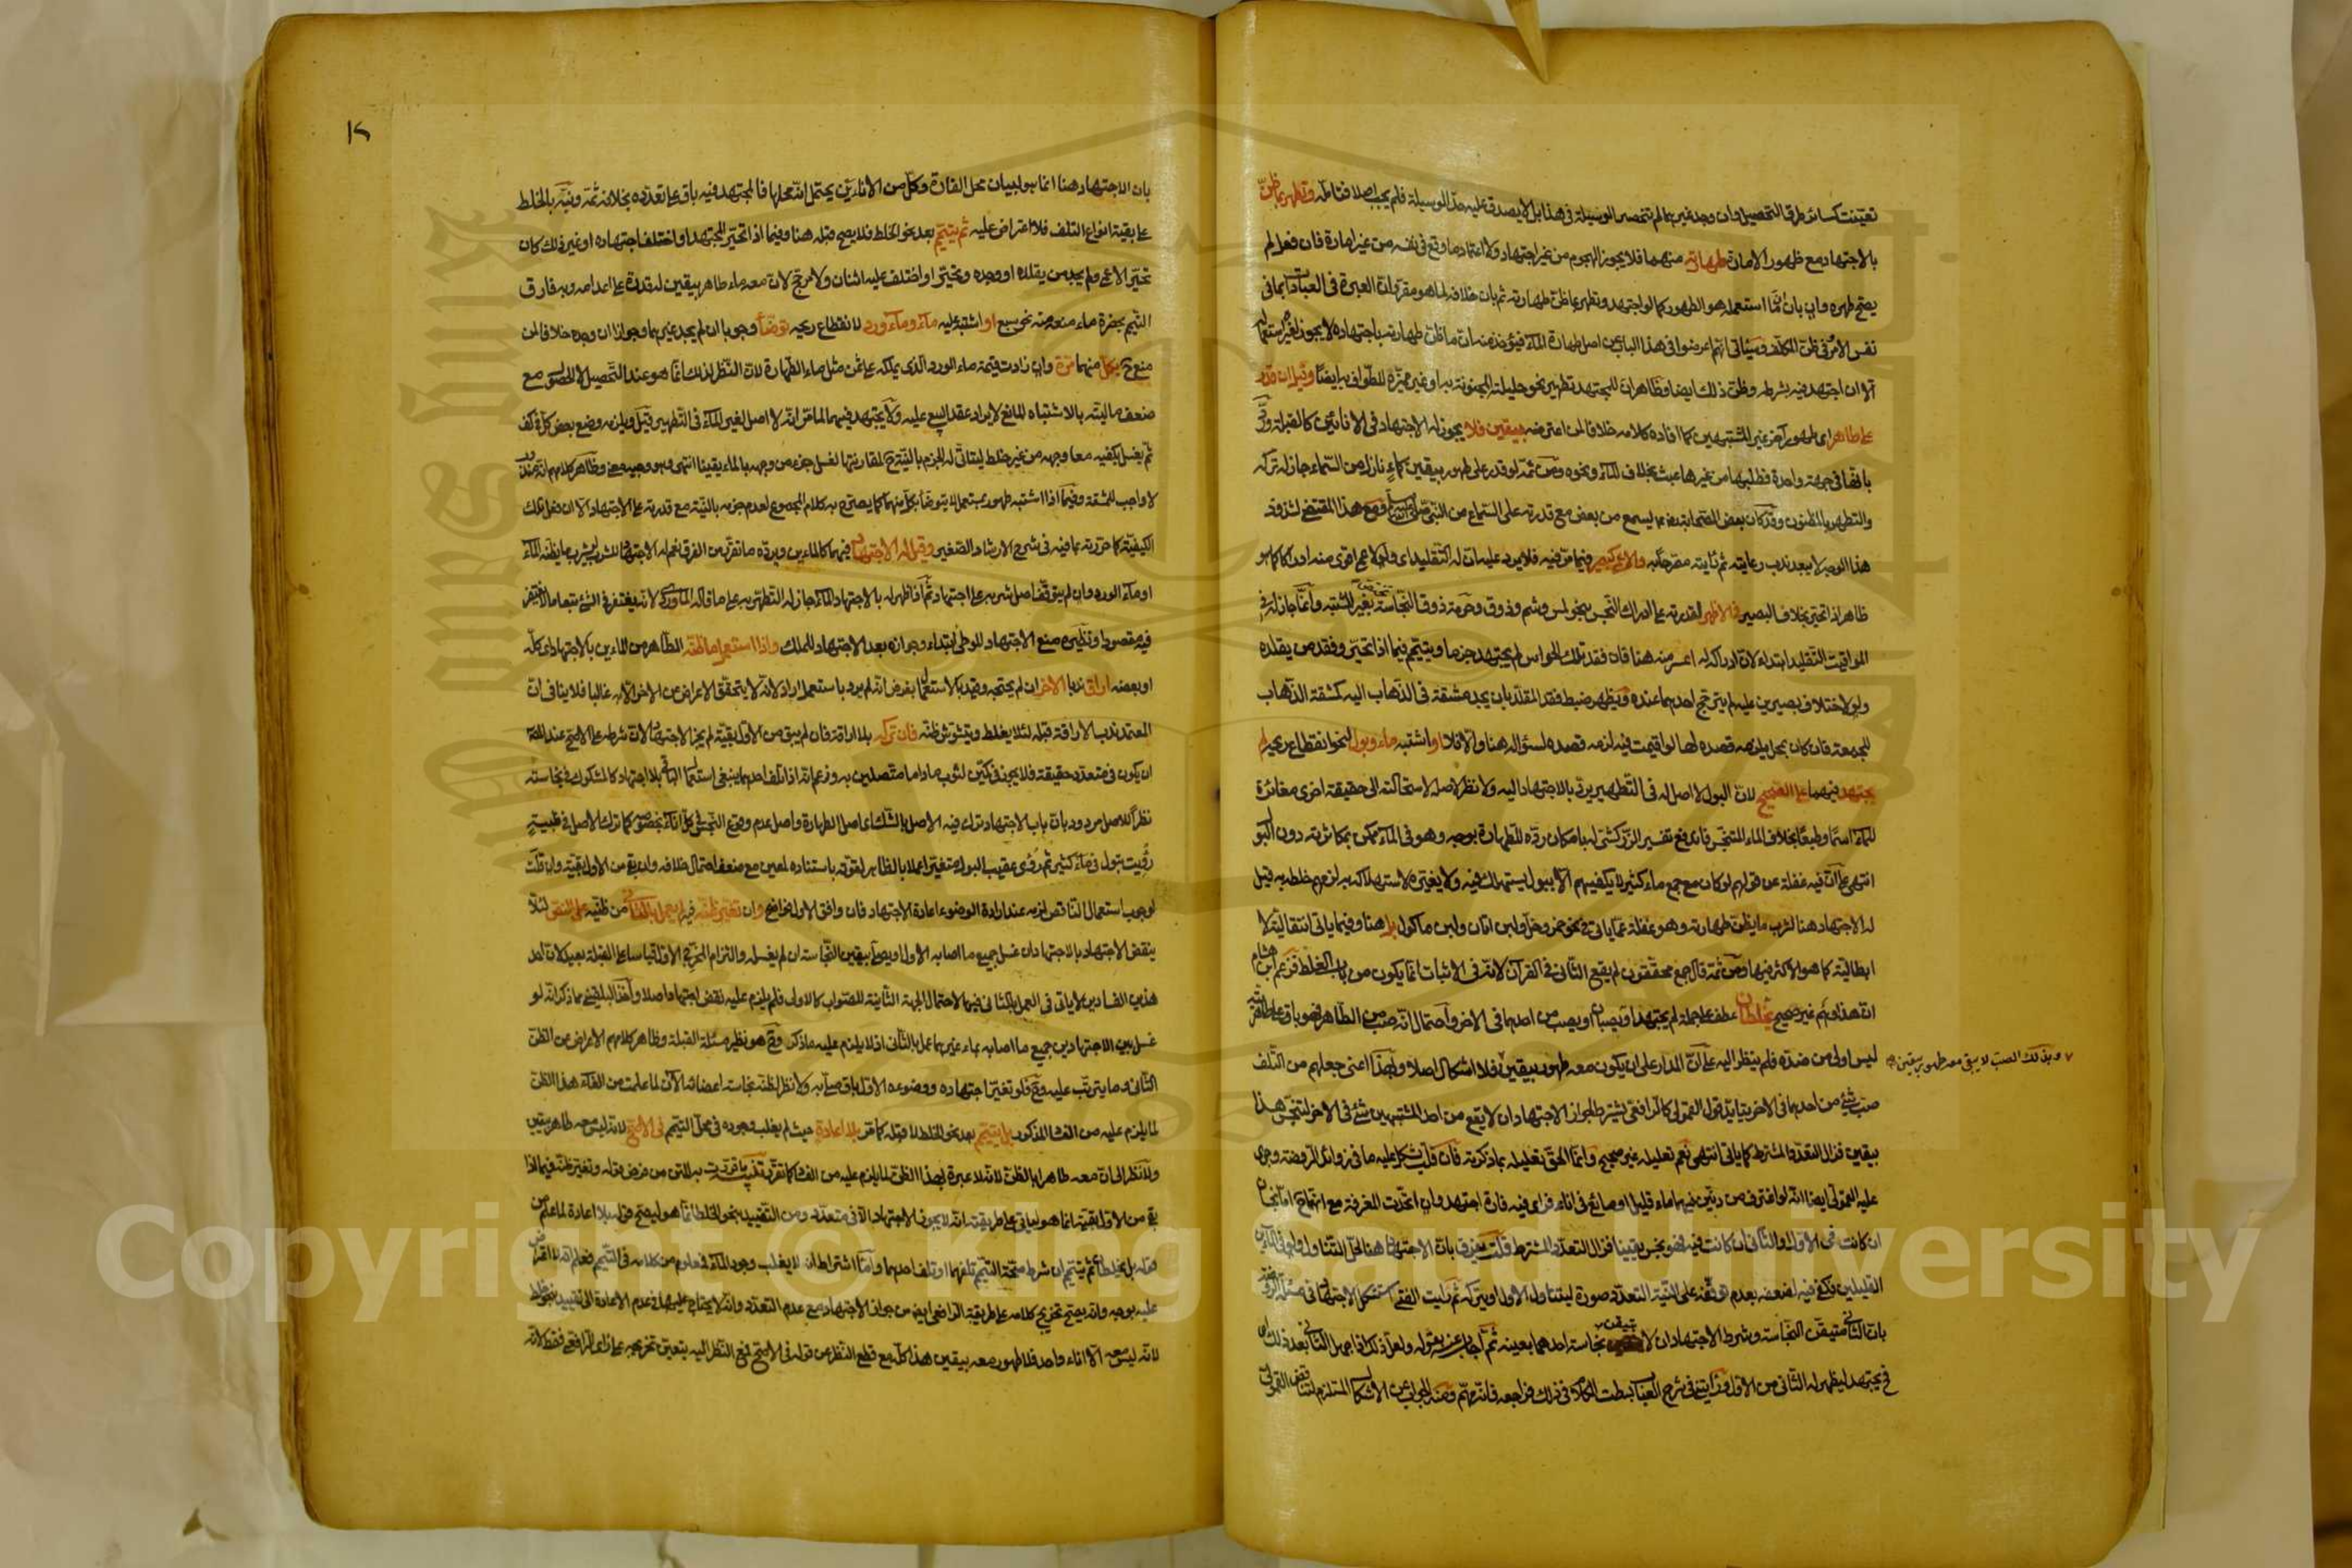 تعينت كسائر طرق التحصيل وان وجد غيرهما لم تنحصر الوسيلة في هذا بل لا يصدق عليه حد الوسيلة فلم يجب اصلا فتأمله وتطهر بما ظن
بالاجتهاد مع ظهور الامارة طهارته منهما فلا يجوز الهجوم من غير اجتهاد ولا اعتماد ما وقع في نفسه من غير امارة فان فعل لم
يصح طهره وان بان ان ما استعمله هو الطهور كما لو اجتهد وتطهر بما ظن طهارته ثم بان خلافه لما هو مقرر ان العبرة في العبادات بما في
نفس الامر في ظن المكلف وسيأتي انهم اعرضوا في هذا الباب عن اصل طهارة الماء فيؤخذ منه ان ما ظن طهارته باجتهاده لا يجوز لغيره استعماله
الا ان اجتهد فيه بشرطه وظن ذلك ايضا وظاهر ان للمجتهد تطهير نحو حليلته المجنونة به او غير مميزة للطواف به ايضا وقيل ان قدر
على طاهر اي طهور آخر غير المشتبهين كما افاده كلامه خلافا لمن اعترضه بيقين فلا يجوز له الاجتهاد في الاناءين كالقبلة ورد
بانها في جهة واحدة فطلبها من غيرها عبث بخلاف الماء ونحوه ومن ثمة لو قدر على طهور بيقين كماء نازل من السماء جاز له تركه
والتطهر بالمظنون وقد كان بعض الصحابة يسمع من بعض مع قدرته على السماع من النبي صلى الله عليه وسلم ومع هذا المقتضي لشذوذ
هذا الوجه لا يبعد ندب رعايته ثم رأيته مصرحا به والاعمى كبصير فيما مر فيه فلا يرد عليه ان له التقليد اي ولو لاعمى اقوى منه ادراكا كما هو
ظاهر اذا تحير بخلاف البصير في الاظهر لقدرته على ادراك النجس بنحو لمس وشم وذوق وحرمة ذوق النجاسة تختص بغير المشتبه وانما جاز له في
المواقيت التقليد ابتداء لان ادراكه له اعسر منه هنا فان فقد تلك الحواس لم يجتهد جزما ويتيمم فيما اذا تحير وفقد من يقلده
ولو لاختلاف بصيرين عليه لم يترجح احدهما عنده ويظهر ضبط فقد المقلد بان يجد مشقة في الذهاب اليه كمشقة الذهاب
للجمعة فان كان بمحل يلزمه قصده لها لو اقيمت فيه لزمه قصده لسؤاله هنا والا فلا او اشتبه ماء وبول لنحو انقطاع ريحه لم
يجتهد فيهما على الصحيح لان البول لا اصل له في التطهير يرد بالاجتهاد اليه ولا نظر لاصله لاستحالته الى حقيقة اخرى مغايرة
للماء اسما وطبعا بخلاف الماء المتنجس فاندفع تفسير الزركشي له بامكان رده للطهارة بوجه وهو في الماء ممكن بمكاثرته دون البول
انتهى على ان فيه غفلة عن قولهم لو كان مع جمع ماء كثير لا يكفيهم الا ببول يستهلك فيه ولا يغيره لاستهلاكه به لزمهم خلطه به قيل
له الاجتهاد هنا لشرب ما يظن طهارته وهو غفلة عما يأتي في نحو خمر وخل ولبن اتان ولبن مأكول بل هنا وفيما يأتي انتقالية لا
ابطالية كما هو الاكثر فيها ومن ثمة قال جمع محققون لم يقع الثاني في القرآن لانه في الاثبات انما يكون من باب الغلط فزعم ابن هشام
ان هذا وهم غير صحيح يخلطان عطف على جملة لم يجتهد او يصبان او يصب من احدهما في الاخر واحتمال انه صب من الطاهر فهو باق على طاهريته
ليس اولى من ضده فلم ينظر اليه على ان المدار على ان يكون معه طهور بيقين فلا اشكال اصلا وبهذا اعني جعلهم من التلف
وبذلك الصب لا يبقى معه طهور بيقين صح
صب شيء من احدهما في الاخر يتايد قول القمولي كالرافعي يشترط لجواز الاجتهاد ان لا يقع من احد المشتبهين شئ في الاخر لتنجس هذا
بيقين فزال التعدد المشترط كما يأتي انتهى نعم تعليله غير صحيح وانما الحق تعليله بما ذكرته فان قلت يشكل عليه ما في زوائد الروضة وجرى
عليه القمولي ايضا انه لو اغترف من دنين فيهما ماء قليل او مائع في اناء فرأى فيه فارة اجتهد وان اتحدت المغرفة مع اتهما
ان كانت في الاول والثاني ان كانت فيه فهو نجس يقينا فزال التعدد المشترط قلت يفرق بان الاجتهاد هنا لحل التناول ولو في الماءين
القليلين فكفى فيه لضعفه بعدم توقفه على النية التعدد صورة ليتناول الاول او يتركه ثم رايت الفتى استشكل الاجتهاد في مسئلة الروضة
بان الثاني متيقن النجاسة وشرط الاجتهاد ان لا يتيقن نجاسة احدهما بعينه ثم اجاب عنه بقوله ولعل ذلك اذا جهل الثاني بعد ذلك اي
فيجتهد ليظهر له الثاني من الاول وراتيني في شرح العباب بسطت الكلام في ذلك فراجعه فانه مهم ومنه الجواب عن الاشكال المستلزم لتناقض القمولي
١٢
بان الاجتهاد هنا انما هو لبيان محل الفارة وكل من الاناءين يحتمل انه محلها فالمجتهد فيه باق على تعدده بخلافه ثمة ونبه بالخلط
على بقية انواع التلف فلا اعتراض عليه ثم يتيمم بعد نحو الخلط فلا يصح قبله هنا وفيما اذا تحير المجتهد او اختلف اجتهاده او غير ذلك كان
تحير الاعمى ولم يجد من يقلده او وجده وتحير او اختلف عليه اثنان ولا مرجح لان معه ماء طاهر بيقين له قدرة على اعدامه وبه فارق
التيمم بحضرة ماء منعه منه نحو سبع او اشتبه عليه ماء وماء ورد لانقطاع ريحه توضأ وجوبا ان لم يجد غيرهما وجوازا ان وجده خلافا لمن
منع ح بكل منهما مرة وان زادت قيمة ماء الورد الذي يملكه على ثمن مثل ماء الطهارة لان النظر لذلك انما هو عند التحصيل لا الحصول مع
ضعف ماليته بالاشتباه المانع لايراد عقد البيع عليه ولا يجتهد فيهما لما مر انه لا اصل لغير الماء في التطهير قيل ويلزمه وضع بعض كل في كف
ثم يغسل بكفيه معا وجهه من غير خلط ليتأتى له الجزم بالنية ح لمقارنتها لغسل جزء من وجهه بالماء يقينا انتهى وهو وجيه معنى وظاهر كلامهم انه مندوب
لا واجب للمشقة وفيما اذا اشتبه طهور بمستعمل يتوضأ بكل منهما كما يصرح به كلام المجموع لعدم جزمه بالنية مع قدرته على الاجتهاد الا ان فعل تلك
الكيفية كما حررته بما فيه في شرح الارشاد الصغير وقيل له الاجتهاد فيهما كالماءين ويرده ما تقرر من الفرق نعم له الاجتهاد للشرب ليشرب ما يظنه الماء
او ماء الورد وان لم يتوقف اصل شربه على اجتهاد ثم اذا ظهر له بالاجتهاد الماء جاز له التطهر به على ما قاله الماوردي لانه يغتفر في الشئ تبعا ما لا يغتفر
فيه مقصودا ونظيره منع الاجتهاد للوطئ ابتداء وجوازه بعد الاجتهاد للملك واذا استعمل ما ظنه الطاهر من الماءين بالاجتهاد اي كله
او بعضه اراق ندبا الاخر ان لم يحتجه وقيد بالاستعمال بفرض انه لم يرد باستعمل اراد لانه لا يتحقق الاعراض من الاخر الا به غالبا فلا ينافي ان
المعتمد ندب الاراقة قبله لئلا يغلط ويتشوش ظنه فان تركه بلا اراقة فان لم يبق من الاول بقية لم يجز الاجتهاد لان شرطه على الاصح عند
ان يكون في متعدد حقيقة فلا يجوز في كمين لثوب ما داما متصلين به وزعم انه اذا تلف احدهما ينبغي استعمال الباقي بلا اجتهاد كالمشكوك في نجاسته
نظرا للاصل مردود بان باب الاجتهاد ترك فيه الاصل بالشك اي اصل الطهارة واصل عدم وقوع النجس في كل اناء بخصوصه كما ترك الاصل في ظبية
رؤيت تبول في ماء كثير ثم رؤى عقيب البول متغيرا عملا بالظاهر لقوته باستناده لمعين مع ضعف احتمال خلافه وان بقي من الاول بقية وان قلت
لوجوب استعمال الناقص لزمه عند ارادة الوضوء اعادة الاجتهاد فان وافق الاول فواضح وان تغير ظنه فيه لم يعمل بالثاني من ظنيه على النص لئلا
ينقض الاجتهاد بالاجتهاد ان غسل جميع ما اصابه الاول او يصلي بيقين النجاسة ان لم يغسله والتزام المخرج الاول قياسا على القبلة بعيد لان احد
هذين الفسادين لا يأتي في العمل بالثاني فيها لاحتمال الجهة الثانية للصواب كالاولى فلم يلزم عليه نقض اجتهاد اصلا واخذ البلقيني مما ذكر انه لو
غسل بين الاجتهادين جميع ما اصابه بماء غيرهما عمل بالثاني اذ لا يلزم عليه ما ذكر وح هو نظير مسئلة القبلة وظاهر كلامهم الاعراض عن الظن
الثاني وما يترتب عليه وح فلو تغير اجتهاده ووضوءه الاول باق صلى به ولا نظر لظنه نجاسة اعضائه الآن لما علمت من الغاء هذا الظن
لما يلزم عليه من الفساد المذكور بل يتيمم بعد نحو الخلط لا قبله كما مر بلا اعادة حيث لم يغلب وجوده في محل التيمم في الاصح لانه ليس معه طاهر بيقين
ولا نظر الى ان معه طاهرا بالظن لانه لا عبرة بهذا الظن لما يلزم عليه من الفساد كما تقرر تنبيه ما قررت به المتن من فرض قوله وتغير ظنه فيما اذا
بقي من الاول بقية انما هو ليأتي على طريقته انه لا يجوز الاجتهاد الا في متعدد ومن التقييد بنحو الخلط انما هو ليصح قوله بلا اعادة لما علم من
قوله بل يخلطان ثم يتيمم ان شرط صحة التيمم تلفهما او تلف احدهما واما اشتراط ان لا يغلب وجود الماء فمعلوم من كلامه في التيمم فعلم انه لا اعتراض
عليه بوجه وانه يصح تخريج كلامه على طريقة الرافعي ايضا من جواز الاجتهاد مع عدم التعدد وانه لا يحتاج عليها في عدم الاعادة الى تقييد بنحو خلط
لانه ليس معه الا اناء واحد فلا طهور معه بيقين هذا كله مع قطع النظر عن قوله في الاصح لمع النظر اليه يتعين تخريجه على راي الرافعي فقط لانه